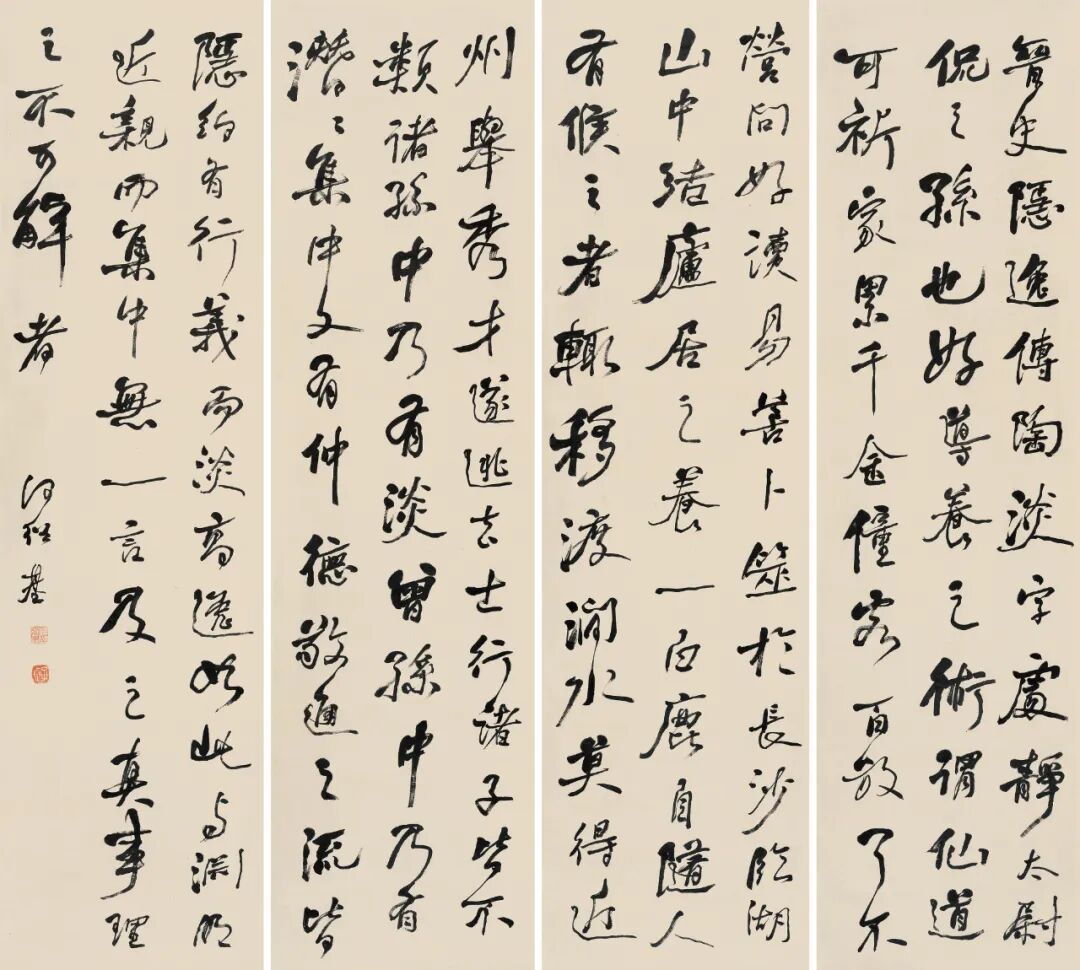 晉史隱逸傳陶淡字處靜太尉
侃之孫也好導養之術謂仙道
可祈家累千金僮客百數了不
營問好讀易善卜筮於長沙臨湖
山中結廬居之養一白鹿自隨人
有候之者輙移渡澗水莫得近
州舉秀才遂逃去士行諸子皆不
類諸孫中乃有淡曾孫中乃有
潛〻集中文有仲德敬通之流皆
隱約有行義而淡高如此與淵明
近親而集中無一言及之真事理
之不可解者
何紹基